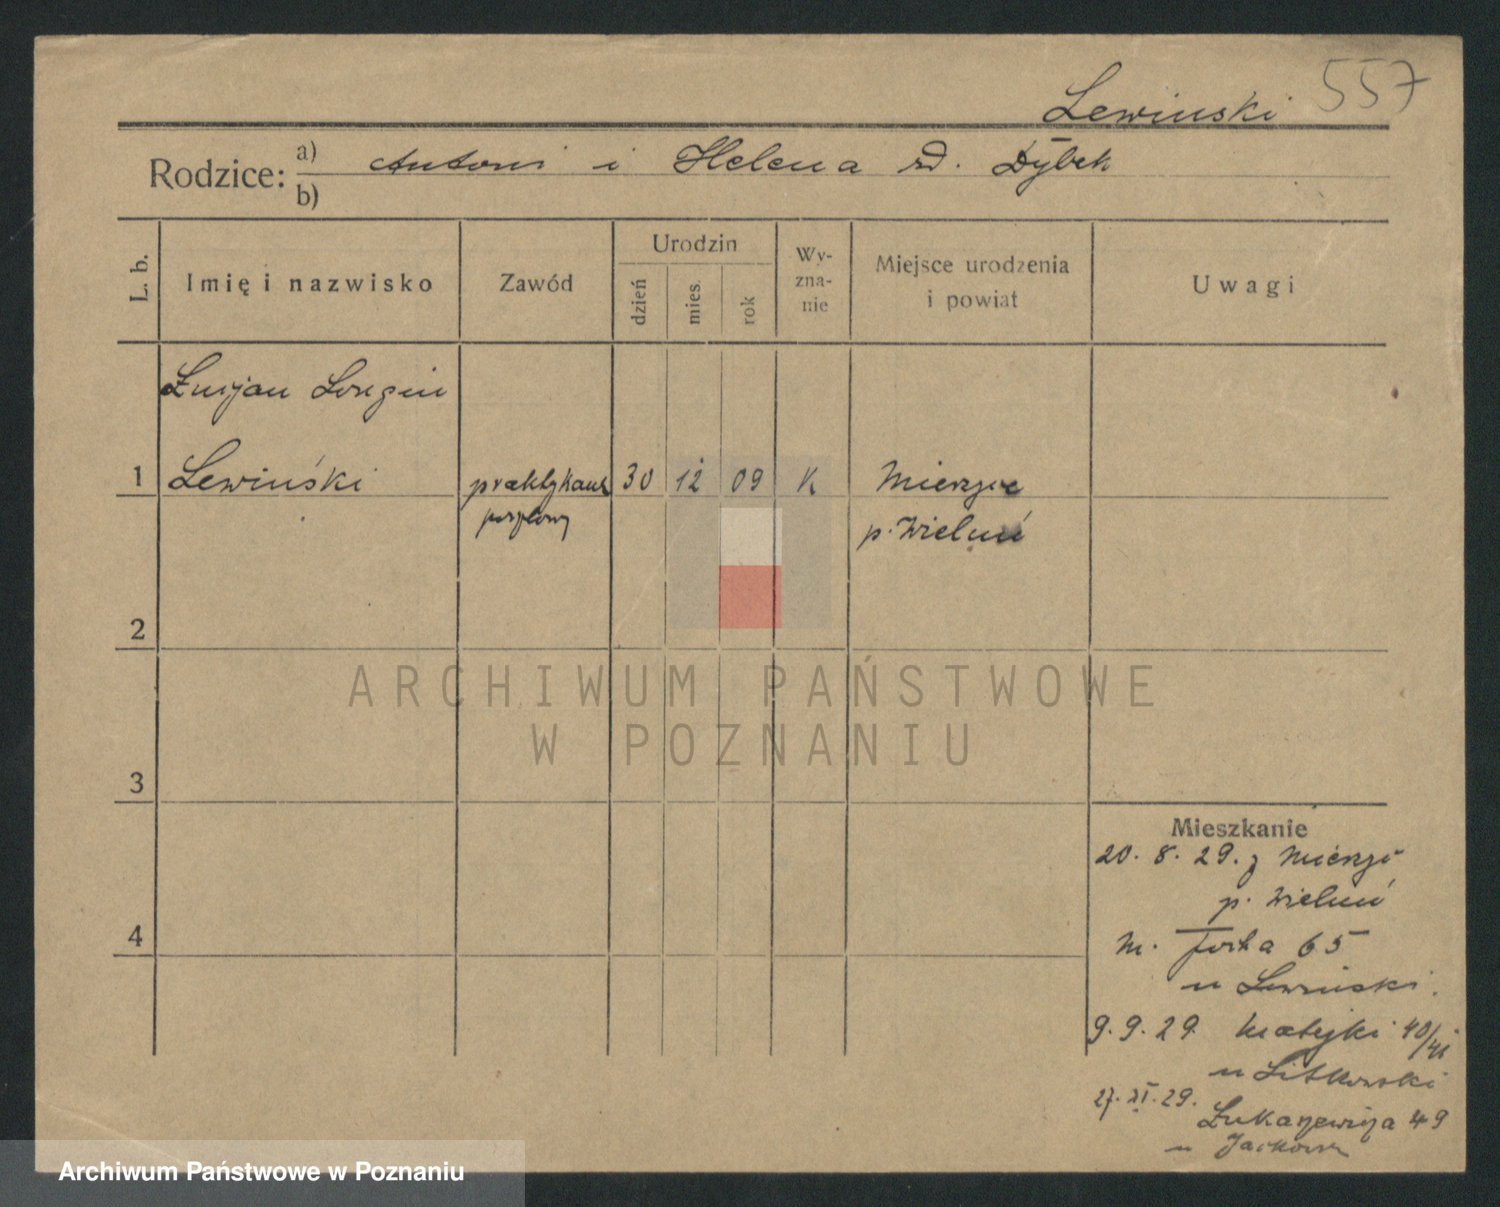 557
Lewinski
Rodzice: a) Antoni i Helena zd. Dybek
b)
L. b.
Imię i nazwisko
Zawód
Urodzin
dzień
mies.
rok
Wy-
zna-
nie
Miejsce urodzenia
i powiat
Uwagi
Łucjan Longin
1 Lewiński praktykant 30 12 09 K Mierzyce
p. Wieluń
2
3
4
Mieszkanie
20. 8. 29. z Mierzyc
p. Wieluń
m. Focha 65
u Lewinski.
9. 9. 29 Matejki 40/41
u Litkowski
27. XI. 29.
Łukaszewicza 49
u
ARCHIWUM PAŃSTWOWE
W POZNANIU
Archiwum Państwowe w Poznaniu